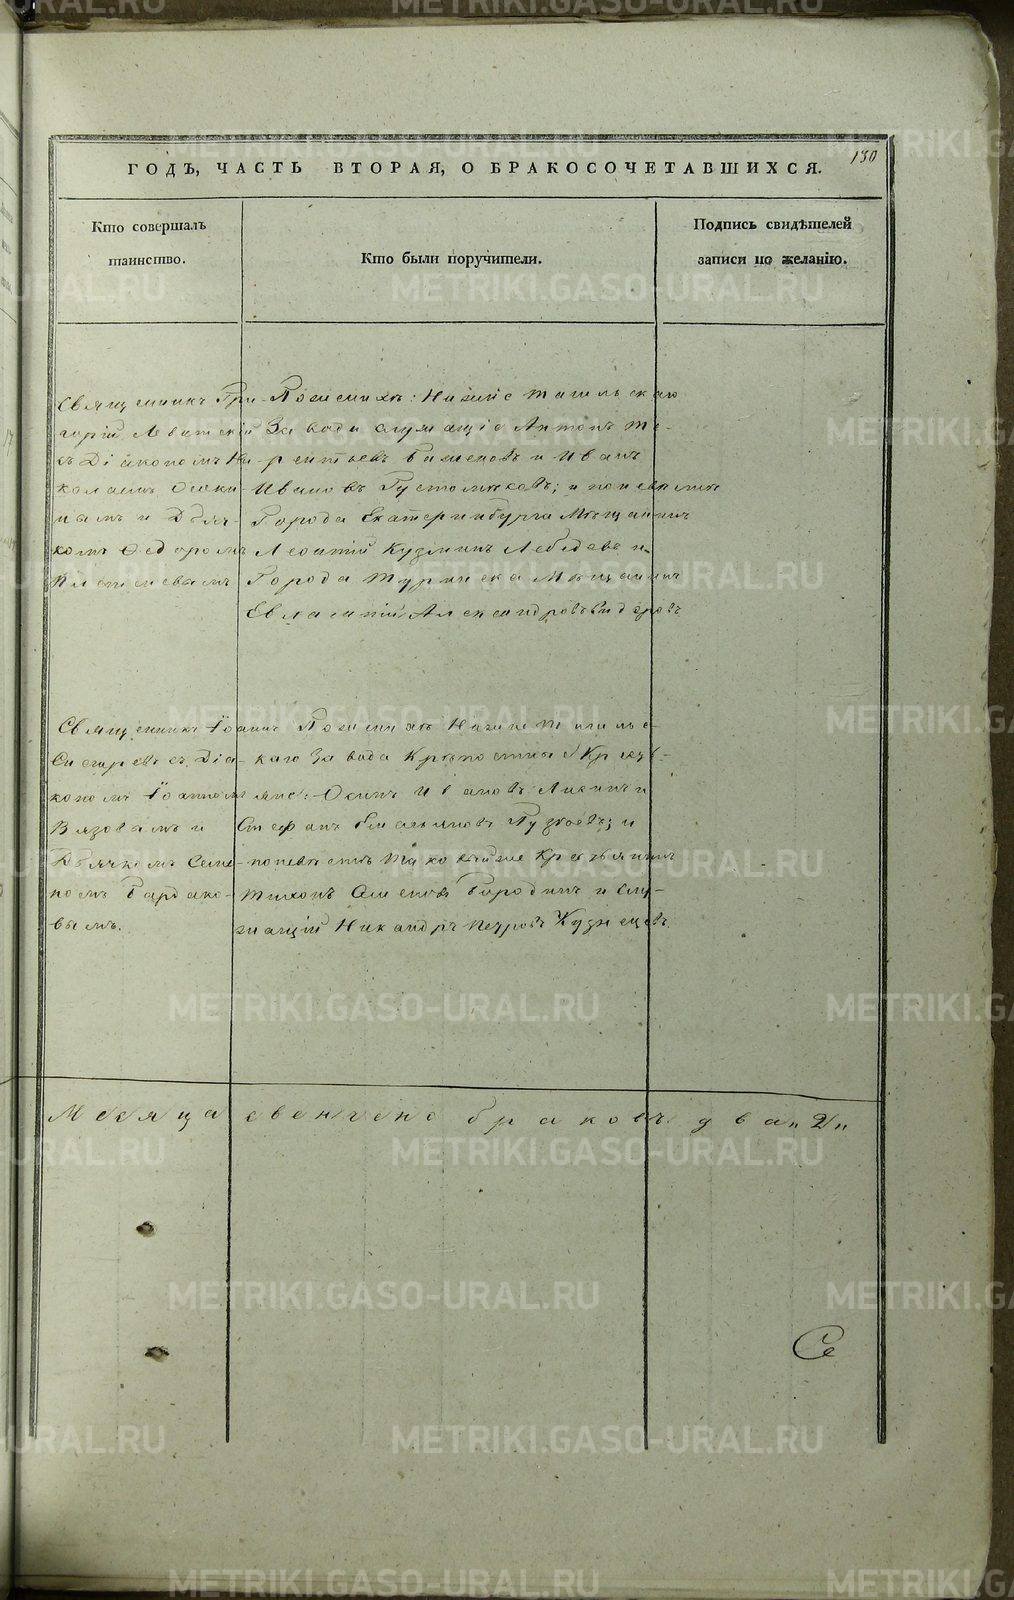 130
ГОДЪ, ЧАСТЬ ВТОРАЯ, О БРАКОСОЧЕТАВШИХСЯ.
Кто совершалъ таинство.
Кто были поручители.
Подпись свидѣтелей записи по желанію.
Священникъ Гри-
горій Левитскій
съ Діакономъ Ни-
колаемъ
и Дьяч-
комъ Федоромъ
По женихѣ: Нижне Тагильскаго
Завода служащіе Антонъ Те-
рентьевъ Баженовъ и Иванъ
Ивановъ и по невѣстѣ
Города Екатеринбурга Мѣщанинъ
Леонтій Кузминъ Лебедевъ и
Города Туринска Мѣщанинъ
Александровъ
Священникъ Іоаннъ
съ Діа-
кономъ Іоанномъ
Вязовымъ и
Дьячкомъ Семе-
номъ Бардако-
вымъ.
По женихѣ Нижне Тагильс-
каго Завода Крѣпостные Кресть-
яне: Осипъ Ивановъ и
Стефанъ и
по невѣстѣ таковыйже Крестьянинъ
Тихонъ Бородинъ и Слу-
жащій Никандръ Петровъ Кузнецовъ
Месяца свенчено браковъ два „2„
Се
METRIKI.GASO-URAL.RU